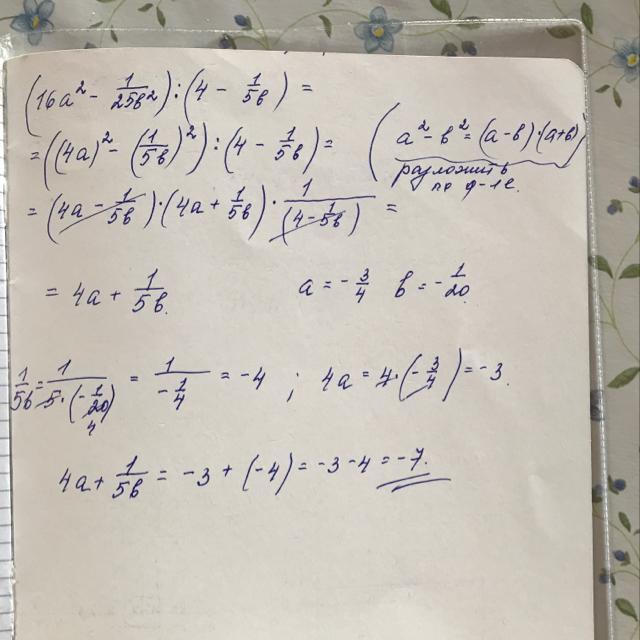 (16a² - 1/25в²) : (4 - 1/5в) =
= ((4a)² - (1/5в)²) : (4 - 1/5в) = (a² - в² = (a-в)·(a+в)
разложить
по ф-ле.
= (4a - 1/5в)·(4a + 1/5в) · 1/(4 - 1/5в) =
= 4a + 1/5в. a = -3/4 в = -1/20.
1/5в = 1/5·(-1/20) = 1/-1/4 = -4 ; 4a = 4·(-3/4) = -3.
4
4a + 1/5в = -3 + (-4) = -3 - 4 = -7.